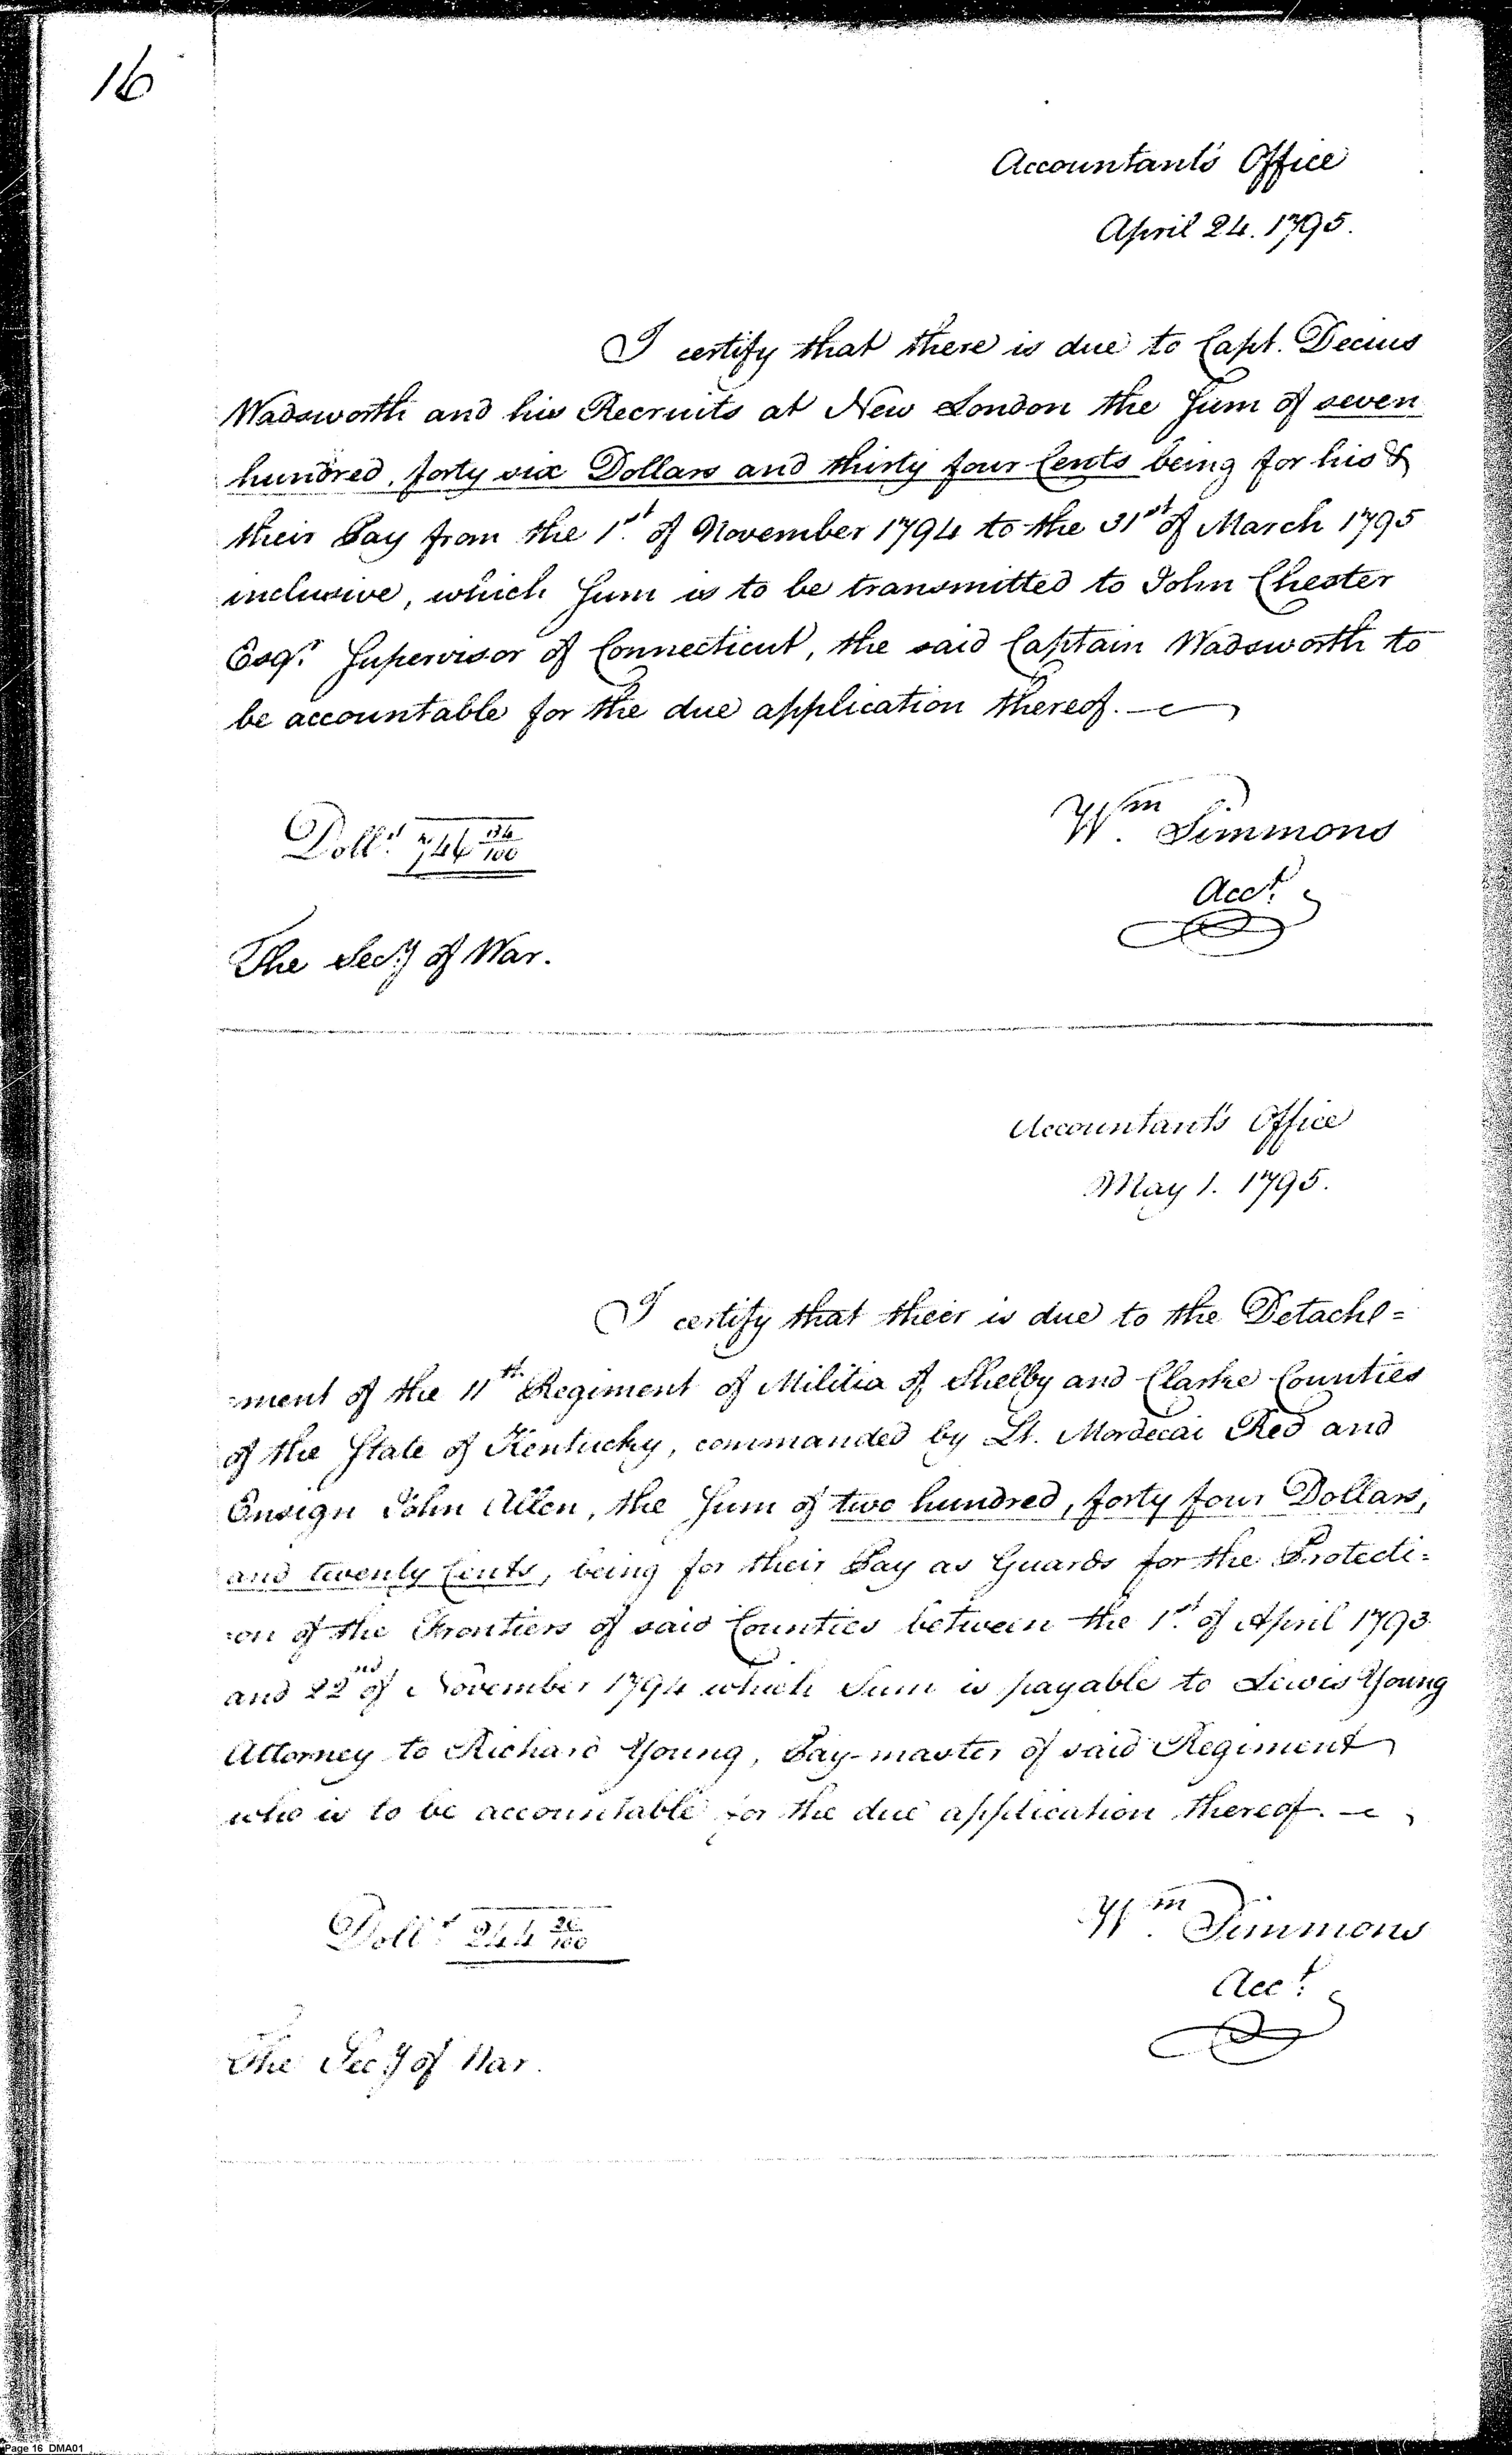 16
Accountant's Office
April 24. 1795.
I certify that there is due to Capt. Decius
Wadsworth and his Recruits at New London the Sum of seven
hundred, forty six Dollars and thirty four Cents being for his &
their Pay from the 1st of November 1794 to the 31st of March 1795
inclusive, which Sum is to be transmitted to John Chester
Esqr. Supervisor of Connecticut, the said Captain Wadsworth to
be accountable for the due application thereof.
Wm. Simmons
Dolls. 746 34/100
Acct.
The Secy of War.
Accountant's Office
May 1. 1795.
I certify that their is due to the Detache=
=ment of the 11th Regiment of Militia of Shelby and Clarke Counties
of the State of Kentucky, commanded by Lt. Mordecai Red and
Ensign John Allen, the Sum of two hundred, forty four Dollars,
and twenty Cents, being for their Pay as Guards for the Protecti=
=on of the Frontiers of said Counties between the 1st of April 1793
and 22nd of November 1794 which Sum is payable to Lewis Young
Attorney to Richard Young, Pay-master of said Regiment
who is to be accountable for the due application thereof.
Wm. Simmons
Dolls. 244 20/100
Acct.
The Secy of War.
Page 16 DMA01